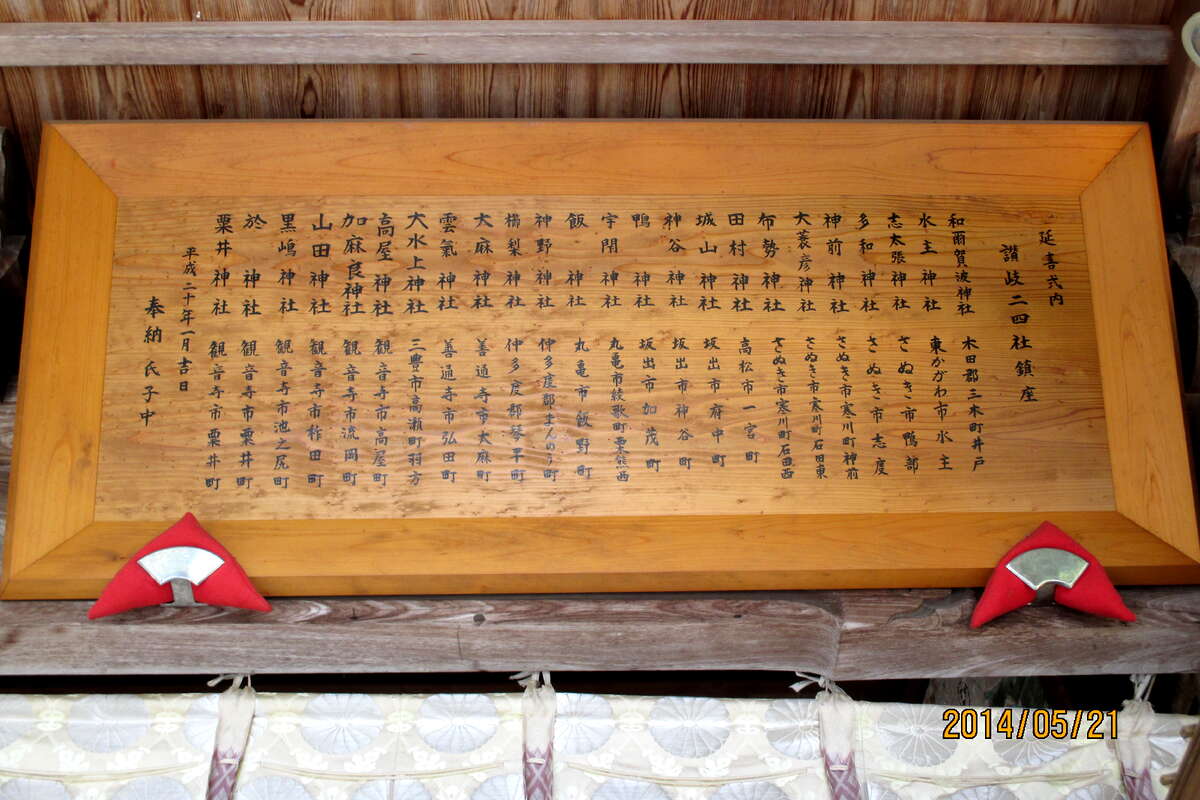 延喜式内
讃岐二四社鎮座
和爾賀波神社 木田郡三木町井戸
水主神社 東かがわ市水主
志太張神社 さぬき市鴨部
多和神社 さぬき市志度
神前神社 さぬき市寒川町神前
大蓑彦神社 さぬき市寒川町石田東
布勢神社 さぬき市寒川町石田西
田村神社 高松市一宮町
城山神社 坂出市府中町
神谷神社 坂出市神谷町
鴨神社 坂出市加茂町
宇閇神社 丸亀市綾歌町栗熊西
飯神社 丸亀市飯野町
神野神社 仲多度郡まんのう町
櫛梨神社 仲多度郡琴平町
大麻神社 善通寺市大麻町
雲氣神社 善通寺市弘田町
大水上神社 三豊市高瀬町羽方
高屋神社 観音寺市高屋町
加麻良神社 観音寺市流岡町
山田神社 観音寺市柞田町
黒嶋神社 観音寺市池之尻町
於神社 観音寺市粟井町
粟井神社 観音寺市粟井町
平成二十年一月吉日
奉納 氏子中
2014/05/21